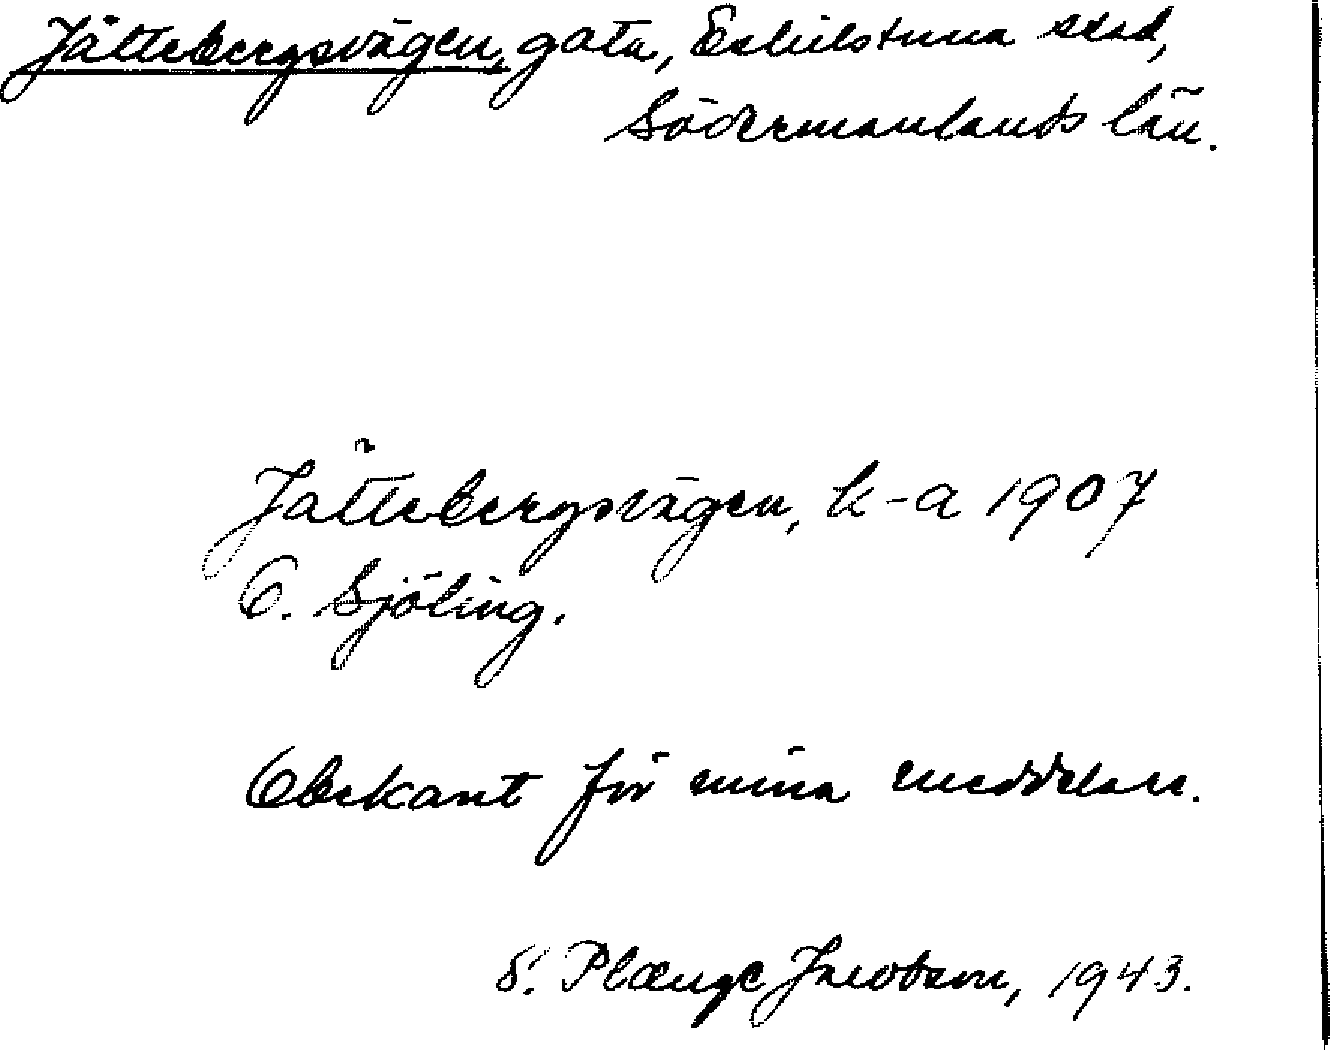 Jättebergsvägen, gata, Eskilstuna stad,
Södermanlands län.
Jättebergsvägen, k-a 1907
O. Sjöling.
Obekant för mina meddelare.
S. Plænge Jacobson, 1943.